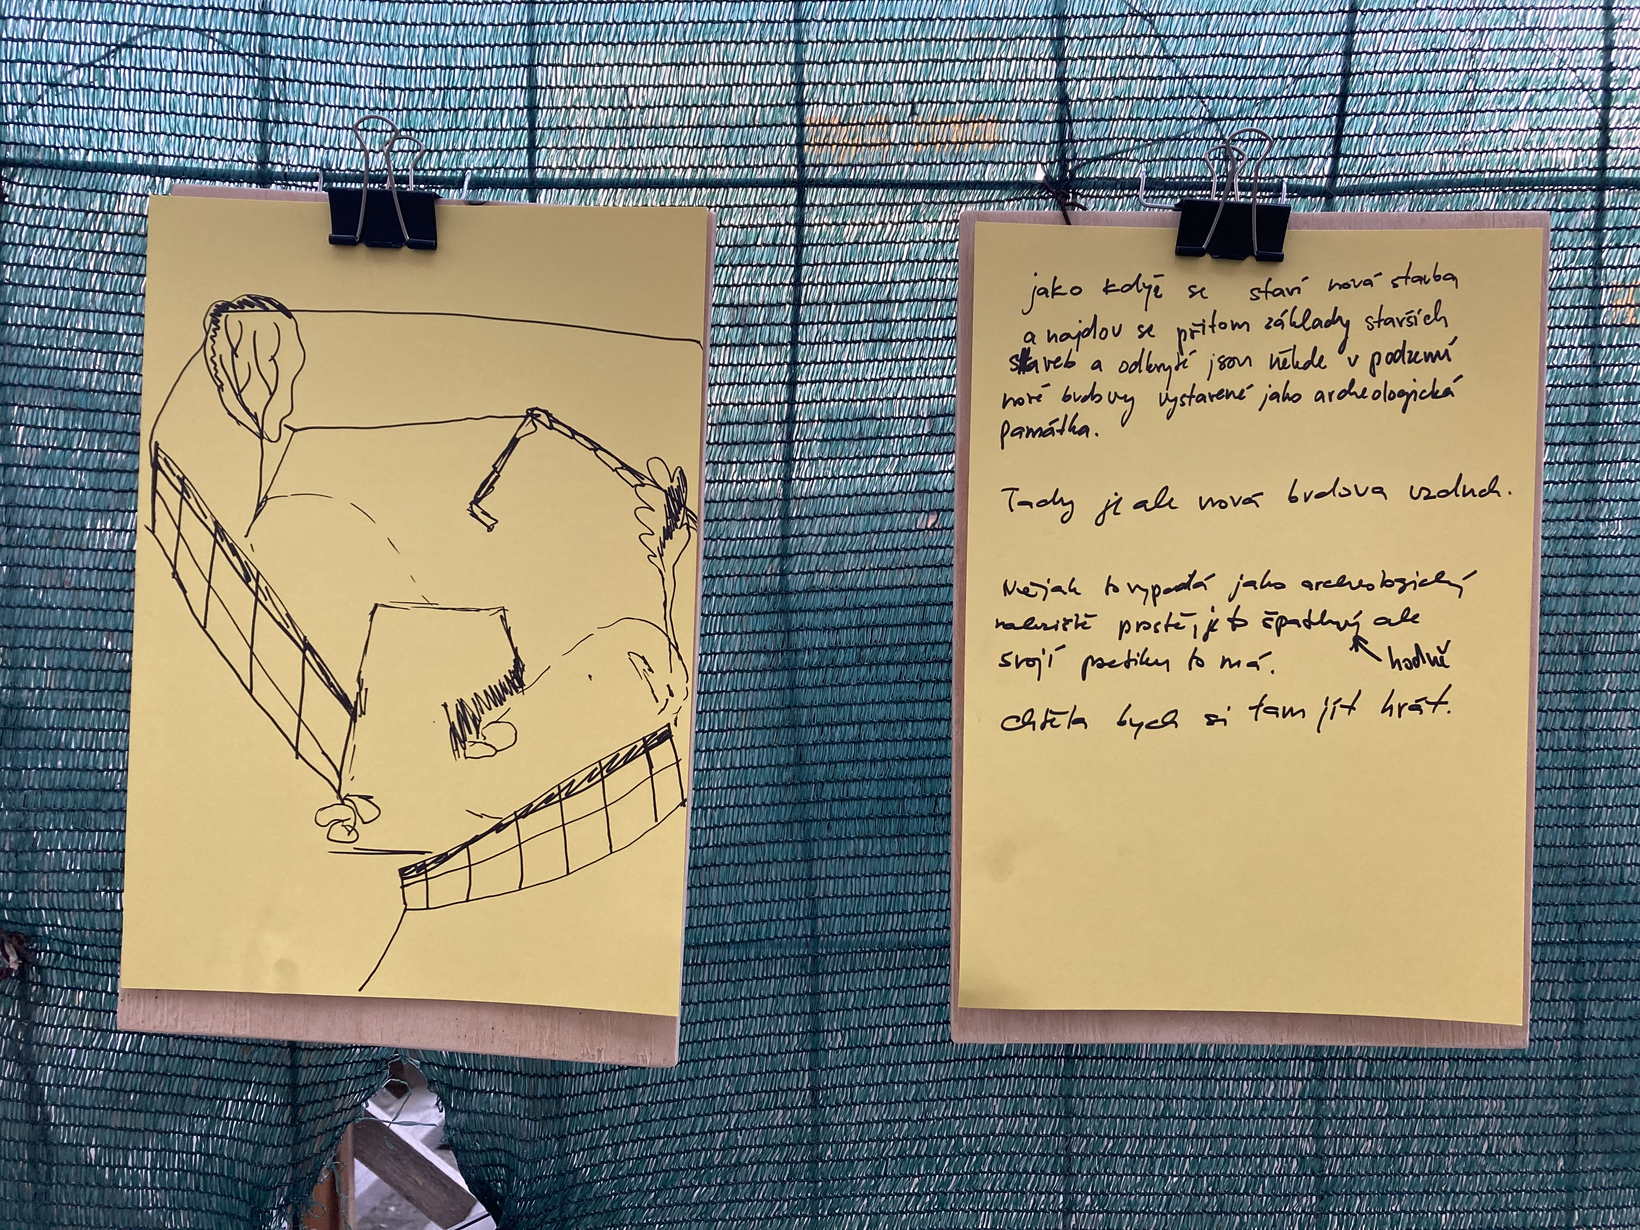 jako když se staví nová stavba
a najdou se přitom základy starších
staveb a odkryté jsou někde v podzemí
nové budovy vystavené jako archeologická
památka.
Tady je ale nová budova vzduch.
Nějak to vypadá jako archeologický
naleziště prostě, je to špatkový ale
hodně
svojí poetiku to má.
chtěla bych si tam jít hrát.